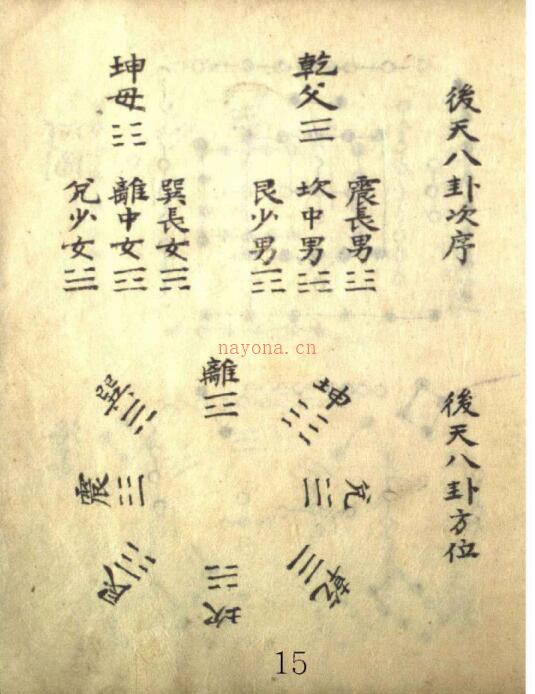 後天八卦次序
乾父 ☰
震長男 ☳
坎中男 ☵
艮少男 ☶
坤母 ☷
巽長女 ☴
離中女 ☲
兌少女 ☱
nayona.cn
後天八卦方位
離 ☲
坤 ☷
兌 ☱
乾 ☰
坎 ☵
艮 ☶
震 ☳
巽 ☴
15